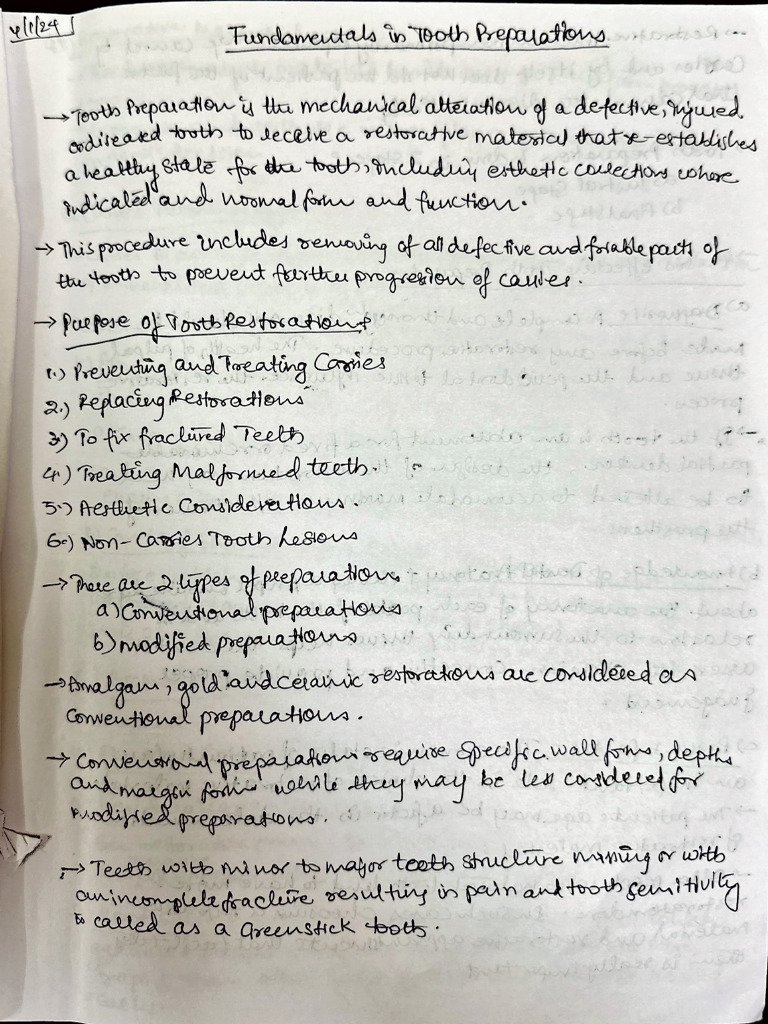 4/1/24
Fundamentals in Tooth Preparations
→ Tooth Preparation is the mechanical alteration of a defective, injured
or diseased tooth to receive a restorative material that re-establishes
a healthy state for the tooth, including esthetic corrections where
indicated and normal form and function.
→ This procedure includes removing of all defective and friable parts of
the tooth to prevent further progression of caries.
→ Purpose of Tooth Restorations
1.) Preventing and Treating Carries
2.) Replacing Restorations
3) To fix fractured Teeth
4.) Treating Malformed teeth.
5.) Aesthetic Considerations.
6.) Non-Carries Tooth Lesions
→ There are 2 types of preparations
a) Conventional preparations
b) modified preparations
→ Amalgam, gold and ceramic restorations are considered as
conventional preparations.
→ Conventional preparations require specific wall forms, depths
and margin forms while they may be less considered for
modified preparations.
→ Teeth with minor to major teeth structure missing or with
an incomplete fracture resulting in pain and tooth sensitivity
is called as a Greenstick tooth.